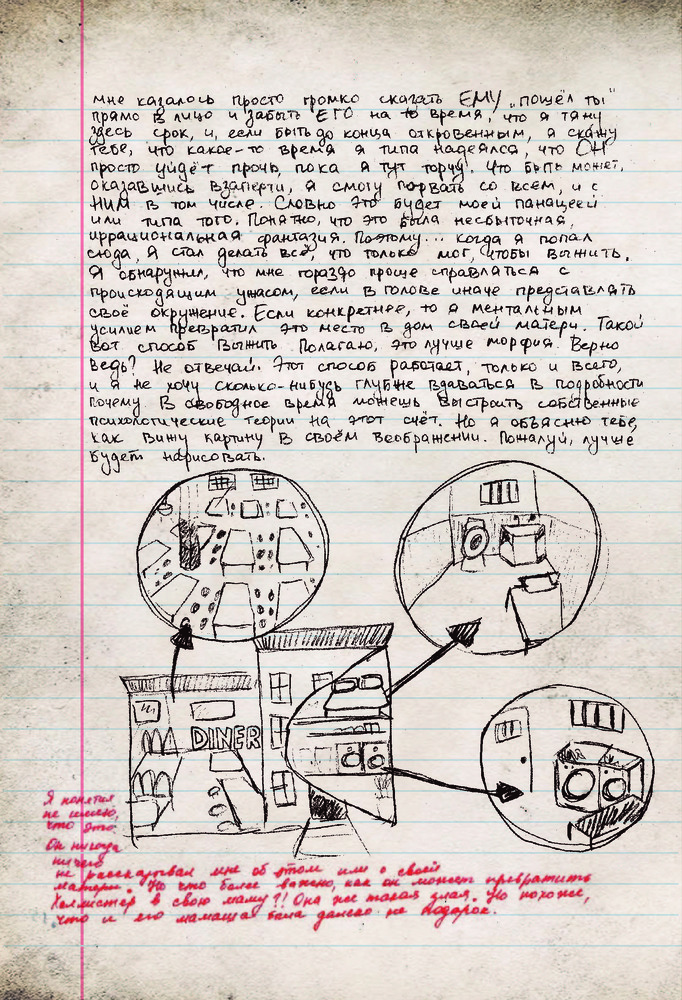 мне казалось просто громко сказать ЕМУ „пошёл ты"
прямо в лицо и забыть ЕГО на то время, что я тяну
здесь срок, и, если быть до конца откровенным, я скажу
тебе, что какое-то время я типа надеялся, что ОН
просто уйдёт прочь, пока я тут торчу. Что быть может,
оказавшись взаперти, я смогу порвать со всем, и с
НИМ в том числе. Словно это будет моей панацеей
или типа того. Понятно, что это была несбыточная,
иррациональная фантазия. Поэтому... когда я попал
сюда, я стал делать всё, что только мог, чтобы выжить.
Я обнаружил, что мне гораздо проще справляться с
происходящим ужасом, если в голове иначе представлять
своё окружение. Если конкретнее, то я ментальным
усилием превратил это место в дом своей матери. Такой
вот способ выжить. Полагаю, это лучше морфия. Верно
ведь? Не отвечай. Этот способ работает, только и всего,
и я не хочу сколько-нибудь глубже вдаваться в подробности
почему. В свободное время можешь выстроить собственные
психологические теории на этот счёт. Но я объясню тебе,
как вижу картину в своём воображении. Пожалуй, лучше
будет нарисовать.
DINER
Я понятия
не имею,
что это.
Он никогда
ничего
не рассказывал мне об этом или о своей
матери. Но что более важно, как он может превратить
Холлистер в свою маму?!! Она же такая злая. Но похоже,
что и его мамаша была далеко не подарок.